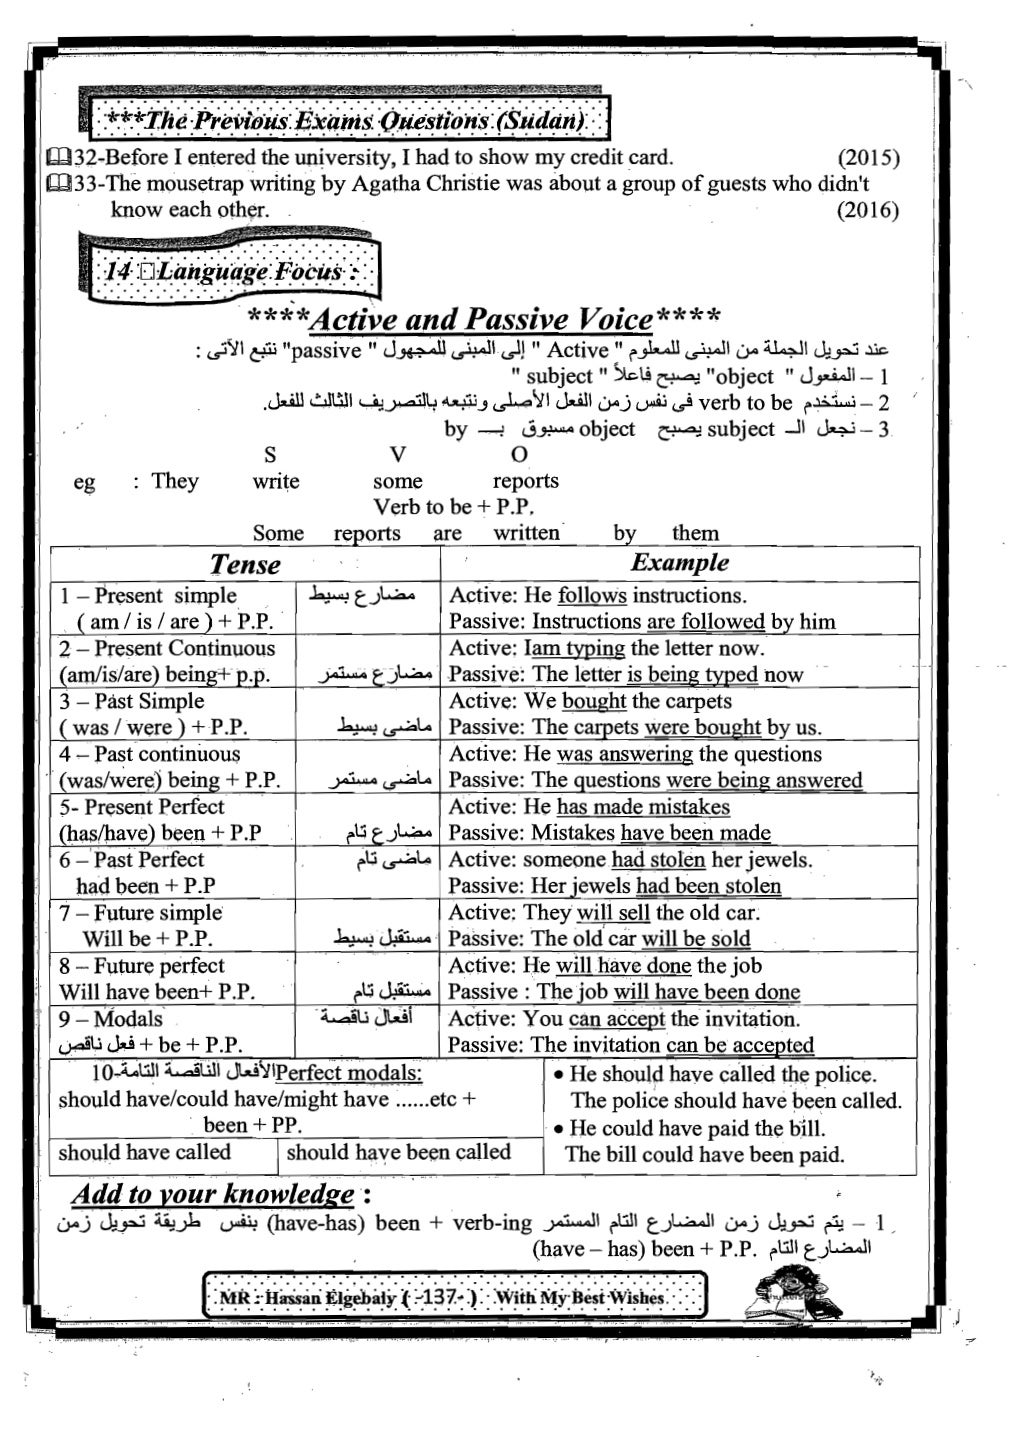 ***The Previous Exams Questions (Sudan)
32-Before I entered the university, I had to show my credit card. (2015)
33-The mousetrap writing by Agatha Christie was about a group of guests who didn't
know each other. (2016)
14 Language Focus :
****Active and Passive Voice****
عند تحويل الجملة من المبنى للمعلوم " Active " إلى المبنى للمجهول " passive" نتبع الآتى :
1 – المفعول " object" يصبح فاعلاً " subject "
2 – نستخدم verb to be فى نفس زمن الفعل الأصلى ونتبعه بالتصريف الثالث للفعل.
3 – نجعل الـ subject يصبح object مسبوق بـ by
S V O
eg : They write some reports
Verb to be + P.P.
Some reports are written by them
Tense Example
1 – Present simple مضارع بسيط Active: He follows instructions.
( am / is / are ) + P.P. Passive: Instructions are followed by him
2 – Present Continuous Active: Iam typing the letter now.
(am/is/are) being+ p.p. مضارع مستمر Passive: The letter is being typed now
3 – Past Simple Active: We bought the carpets
( was / were ) + P.P. ماضى بسيط Passive: The carpets were bought by us.
4 – Past continuous Active: He was answering the questions
(was/were) being + P.P. ماضى مستمر Passive: The questions were being answered
5- Present Perfect Active: He has made mistakes
(has/have) been + P.P مضارع تام Passive: Mistakes have been made
6 – Past Perfect ماضى تام Active: someone had stolen her jewels.
had been + P.P Passive: Her jewels had been stolen
7 – Future simple Active: They will sell the old car.
Will be + P.P. مستقبل بسيط Passive: The old car will be sold
8 – Future perfect Active: He will have done the job
Will have been+ P.P. مستقبل تام Passive : The job will have been done
9 – Modals أفعال ناقصة Active: You can accept the invitation.
فعل ناقص + be + P.P. Passive: The invitation can be accepted
10-الأفعال الناقصة التامة Perfect modals: • He should have called the police.
should have/could have/might have ......etc + The police should have been called.
been + PP. • He could have paid the bill.
should have called should have been called The bill could have been paid.
Add to your knowledge :
1 – يتم تحويل زمن المضارع التام المستمر (have-has) been + verb-ing بنفس طريقة تحويل زمن
المضارع التام (have – has) been + P.P.
MR : Hassan Elgebaly ( -137- ) With My Best Wishes